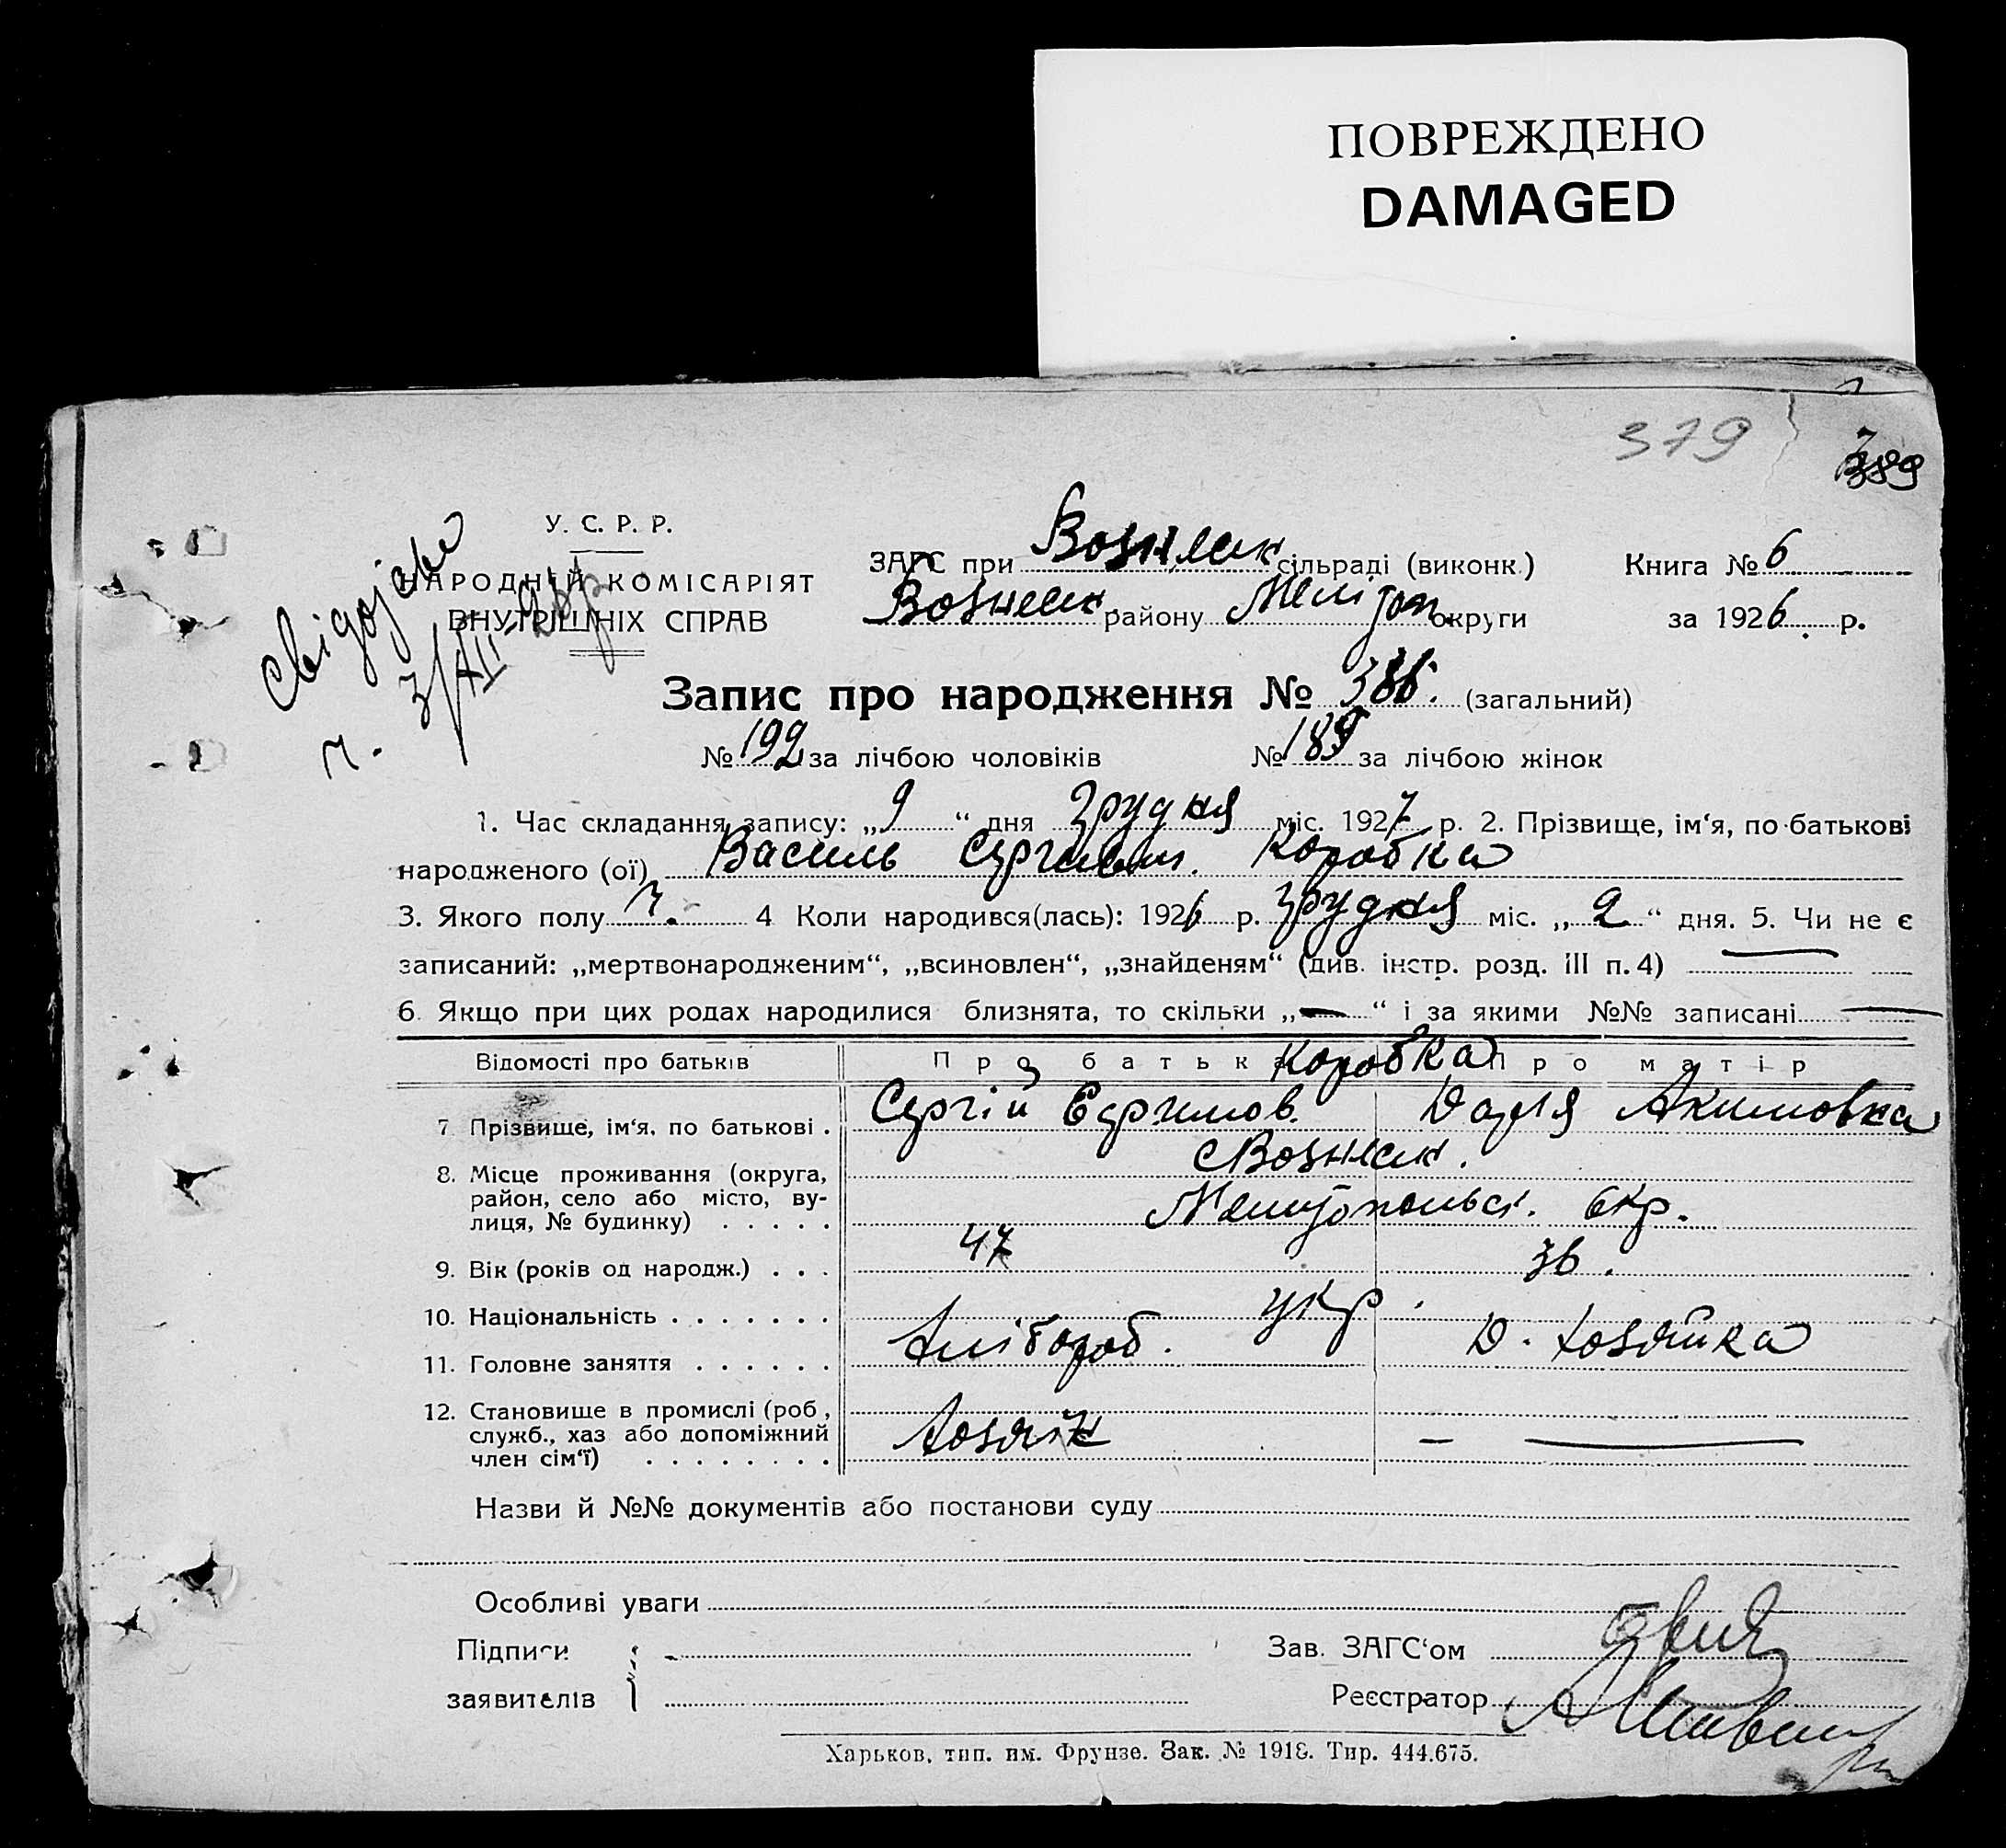 ПОВРЕЖДЕНО
DAMAGED
379
389
У. С. Р. Р.
НАРОДНІЙ КОМІСАРІЯТ
ВНУТРІШНІХ СПРАВ
ЗАГС при Вознесенк сільраді (виконк.) Книга № 6
Вознесенк. району Меліτоπ округи за 1926 р.
Запис про народження № 386. (загальний)
№ 192 за лічбою чоловіків № 189 за лічбою жінок
1. Час складання запису: „9“ дня Грудня міс. 1927 р. 2. Прізвище, ім‘я, по-батькові
народженого (ої) Василь Сергиевич. Коробка
3. Якого полу ч. 4 Коли народився(лась): 1926 р. Грудня міс. „2“ дня. 5. Чи не є
записаний: „мертвонародженим“, „всиновлен“, „знайденям“ (див. інстр. розд. III п. 4) —
6. Якщо при цих родах народилися близнята, то скільки „—“ і за якими №№ записані —
Відомості про батьків Про батька Коробка Про матір
7. Прізвище, ім‘я, по батькові . Сергій Ефимов. Дарья Акимовна
8. Місце проживання (округа, район, село або місто, вулиця, № будинку) . . . . . с Вознесенк.
Мелитопольск. Окр.
9. Вік (років од народж.) . . . 47 36.
10. Національність . . . . . . . укр.
11. Головне заняття . . . . . . Хлібороб. Д. Хозяйка
12. Становище в промислі (роб., служб., хаз або допоміжний член сім‘ї) . . . . . . . . Хозяїн — —
Назви й №№ документів або постанови суду
Особливі уваги
Підписи
заявителів
Зав. ЗАГС‘ом
Реєстратор
Харьков, тип. им. Фрунзе. Зак. № 1918. Тир. 444.675.